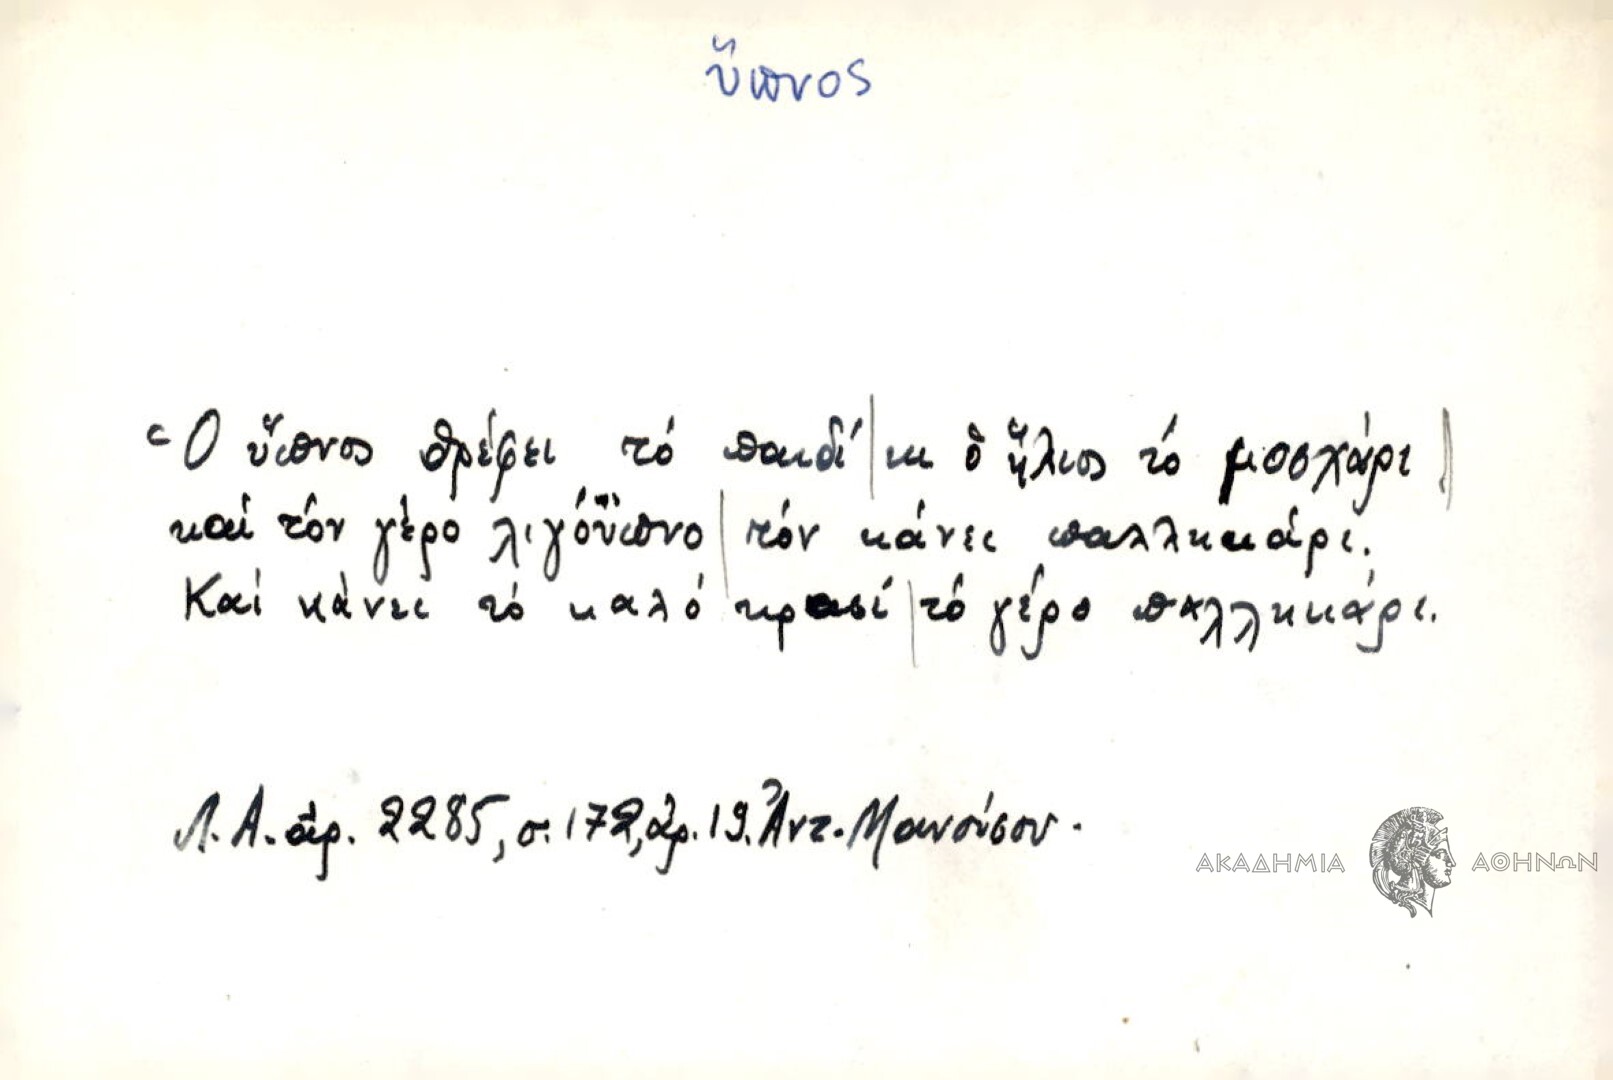 ὕπνος
Ὁ ὕπνος θρέφει τό παιδί | κι ὁ ἥλιος τό μοσχάρι |
καί τόν γέρο λιγόϋπνο | τόν κάνει παλληκάρι.
Καί κάνει τό καλό κρασί | τό γέρο παλληκάρι.
Λ. Α. ἀρ. 2285, σ. 172, ἀρ. 19. Ἀντ. Μανσύσου.
ΑΚΑΔΗΜΙΑ ΑΘΗΝΩΝ